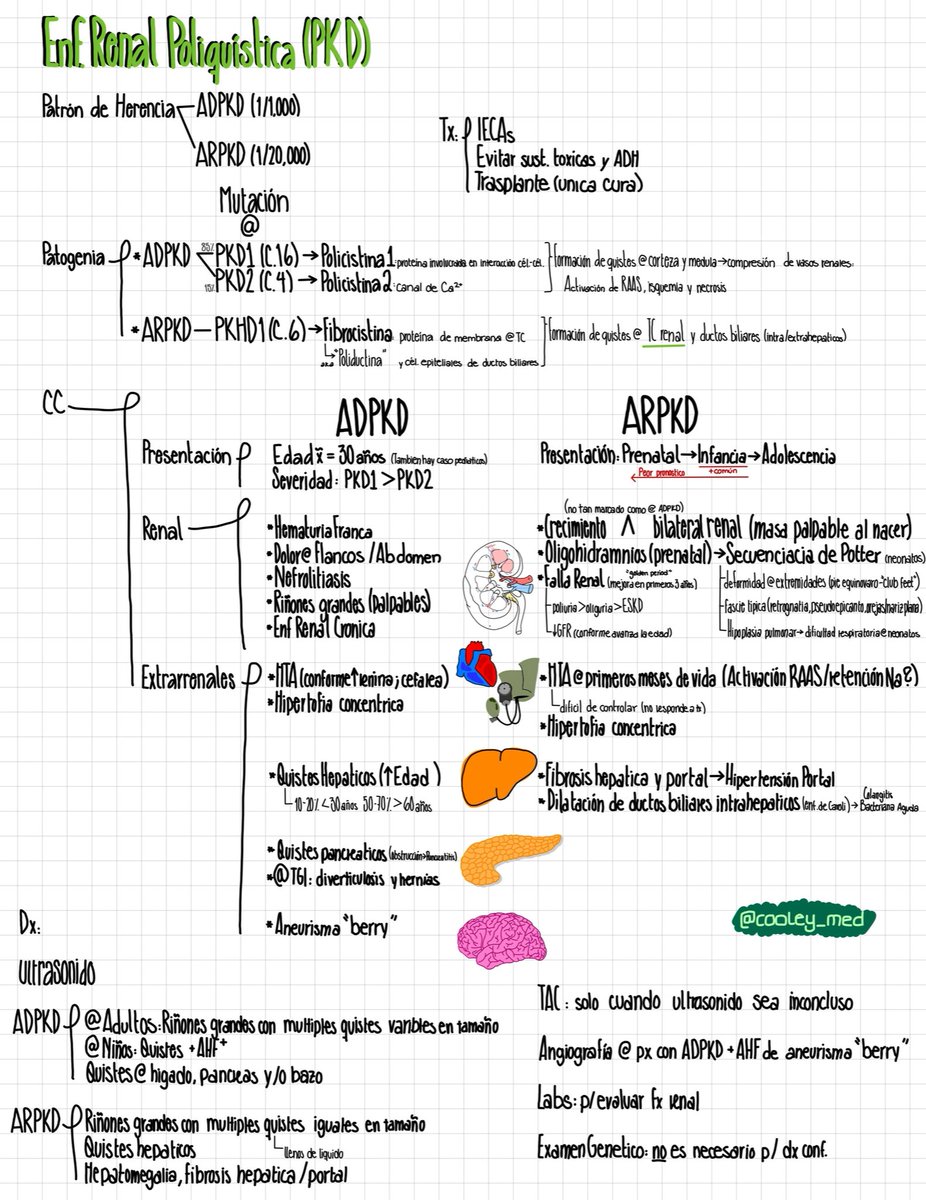 Enf. Renal Poliquística (PKD)
Patrón de Herencia
ADPKD (1/1,000)
ARPKD (1/20,000)
Tx: IECAs
Evitar sust. toxicas y ADH
Trasplante (unica cura)
Mutación
@
Patogenia
*ADPKD
85% PKD1 (C.16) → Policistina 1: proteína involucrada en interacción cél-cél.
15% PKD2 (C.4) → Policistina 2: Canal de Ca²⁺
Formación de quistes @ corteza y medula → compresión de vasos renales:
Activación de RAAS, isquemia y necrosis
*ARPKD — PKHD1 (C.6) → Fibrocistina proteína de membrana @ TC
aka "Poliductina" y cél. epiteliales de ductos biliares
Formación de quistes @ TC renal y ductos biliares (intra/extrahepaticos)
CC
ADPKD
ARPKD
Presentación
Edad x̄ = 30 años (Tambien hay caso pediatricos)
Severidad: PKD1 > PKD2
Presentación: Prenatal → Infancia → Adolescencia
Peor pronostico
+común
Renal
*Hematuria Franca
*Dolor @ Flancos / Abdomen
*Nefrolitiasis
*Riñones grandes (palpables)
*Enf Renal Cronica
(no tan marcado como @ ADPKD)
*Crecimiento ^ bilateral renal (masa palpable al nacer)
*Oligohidramnios (prenatal) → Secuenciacia de Potter (neonatos)
deformidad @ extremidades (pie equinovaro-"club feet")
fascie tipica (retrognatia, pseudoepicanto, orejas/nariz plana)
Hipoplasia pulmonar → dificultad respiratoria @ neonatos
"golden period"
*Falla Renal (mejora en primeros 3 años)
poliuria > oliguria > ESKD
↓GFR (conforme avanza la edad)
Extrarrenales
*HTA (conforme ↑ renina; cefalea)
*Hipertofia concentrica
*HTA @ primeros meses de vida (Activación RAAS/retención Na?)
dificil de controlar (no responde a tx)
*Hipertofia concentrica
*Quistes Hepaticos (↑Edad)
10-20% <30 años 50-70% >60 años
*Fibrosis hepatica y portal → Hipertensión Portal
*Dilatación de ductos biliares intrahepaticos (enf. de Caroli) → Colangitis Bacteriana Aguda
*Quistes pancreaticos (obstrucción > Pancreatitis)
*@ TGI: diverticulosis y hernias
*Aneurisma "berry"
@cooley_med
Dx:
Ultrasonido
ADPKD
@ Adultos: Riñones grandes con multiples quistes varibles en tamaño
@ Niños: Quistes + AHF⁺
Quistes @ higado, pancreas y/o bazo
ARPKD
Riñones grandes con multiples quistes iguales en tamaño
llenos de liquido
Quistes hepaticos
Hepatomegalia, fibrosis hepatica / portal
TAC: solo cuando ultrasonido sea inconcluso
Angiografía @ px con ADPKD + AHF de aneurisma "berry"
Labs: p/ evaluar fx renal
Examen Genetico: no es necesario p/ dx conf.